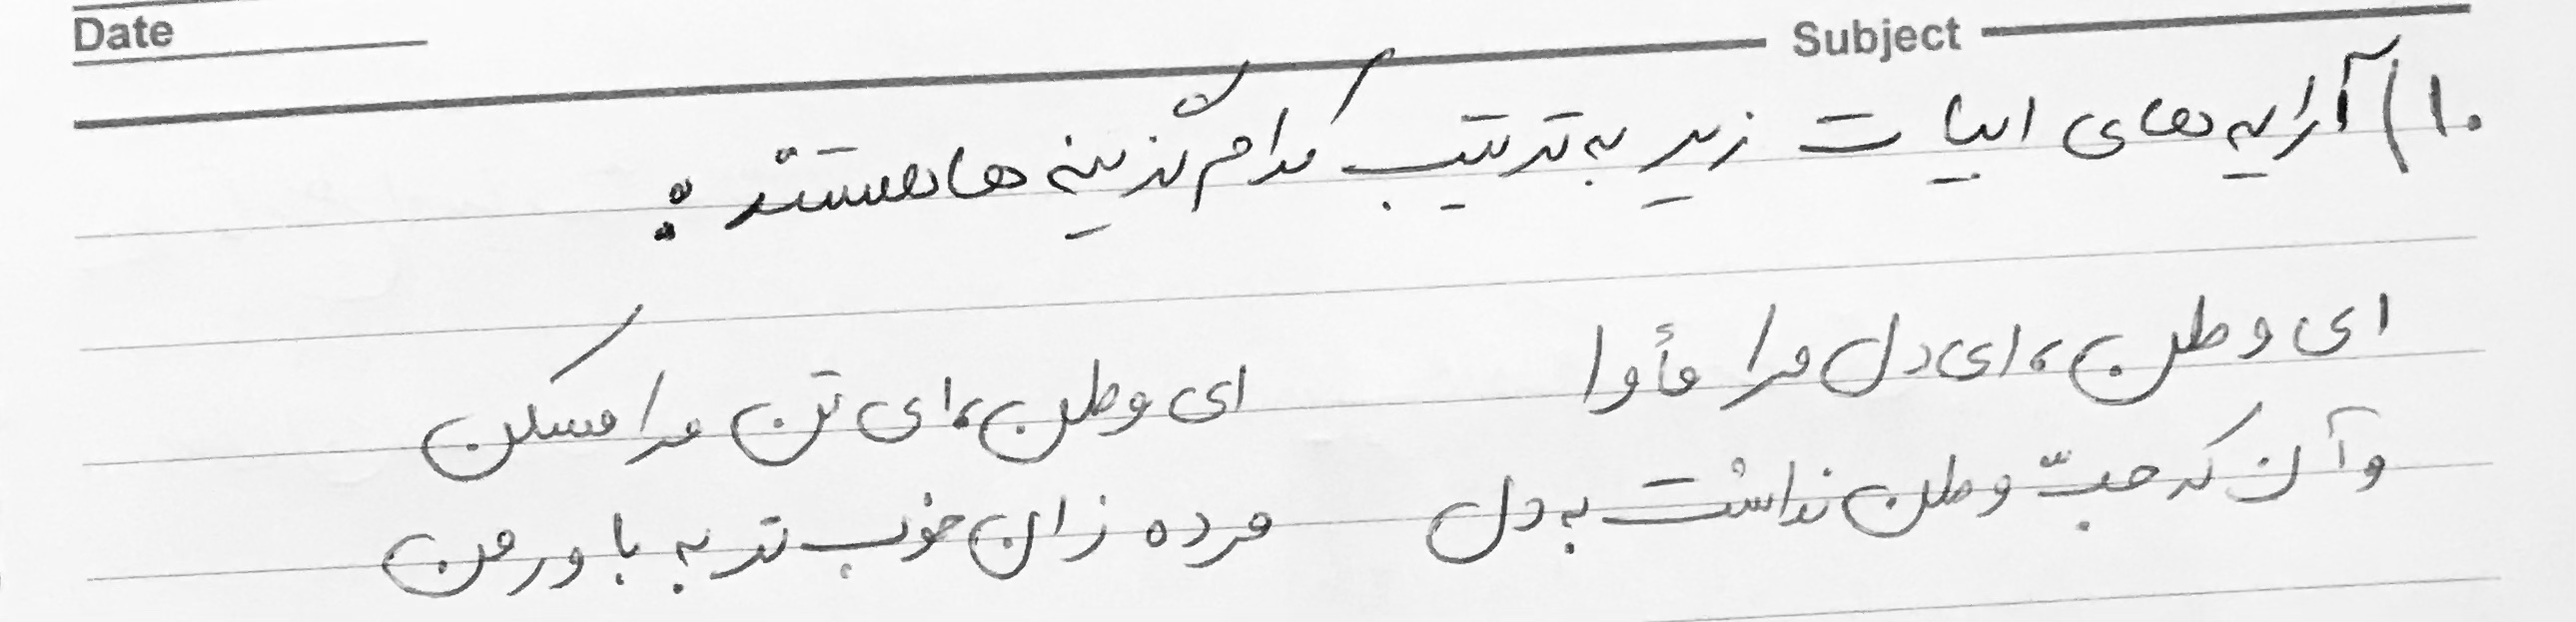 Date Subject
۱۰) آرایه های ابیات زیر به ترتیب کدام گزینه ها هستند:
ای وطن، ای دل مرا مأوا ای وطن، ای تن مرا مسکن
وآن که حبّ وطن نداشت به دل مرده زان خوب تر به باور من